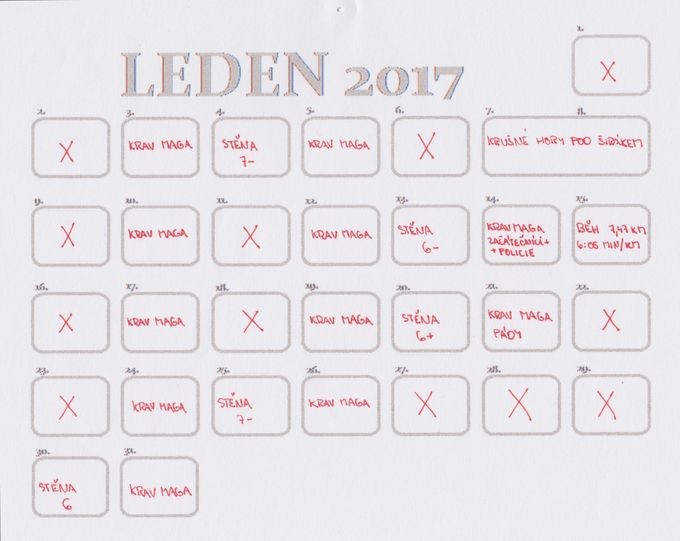 LEDEN 2017
1.
X
2.
X
3.
KRAV MAGA
4.
STĚNA
7-
5.
KRAV MAGA
6.
X
7. 8.
KRUŠNÉ HORY POD ŠIRÁKEM
9.
X
10.
KRAV MAGA
11.
X
12.
KRAV MAGA
13.
STĚNA
6-
14.
KRAV MAGA
ZAČÁTEČNÍCI +
+ POLICIE
15.
BĚH 7,47 KM
6:05 MIN/KM
16.
X
17.
KRAV MAGA
18.
X
19.
KRAV MAGA
20.
STĚNA
6+
21.
KRAV MAGA
PÁDY
22.
X
23.
X
24.
KRAV MAGA
25.
STĚNA
7-
26.
KRAV MAGA
27.
X
28.
X
29.
X
30.
STĚNA
6
31.
KRAV MAGA